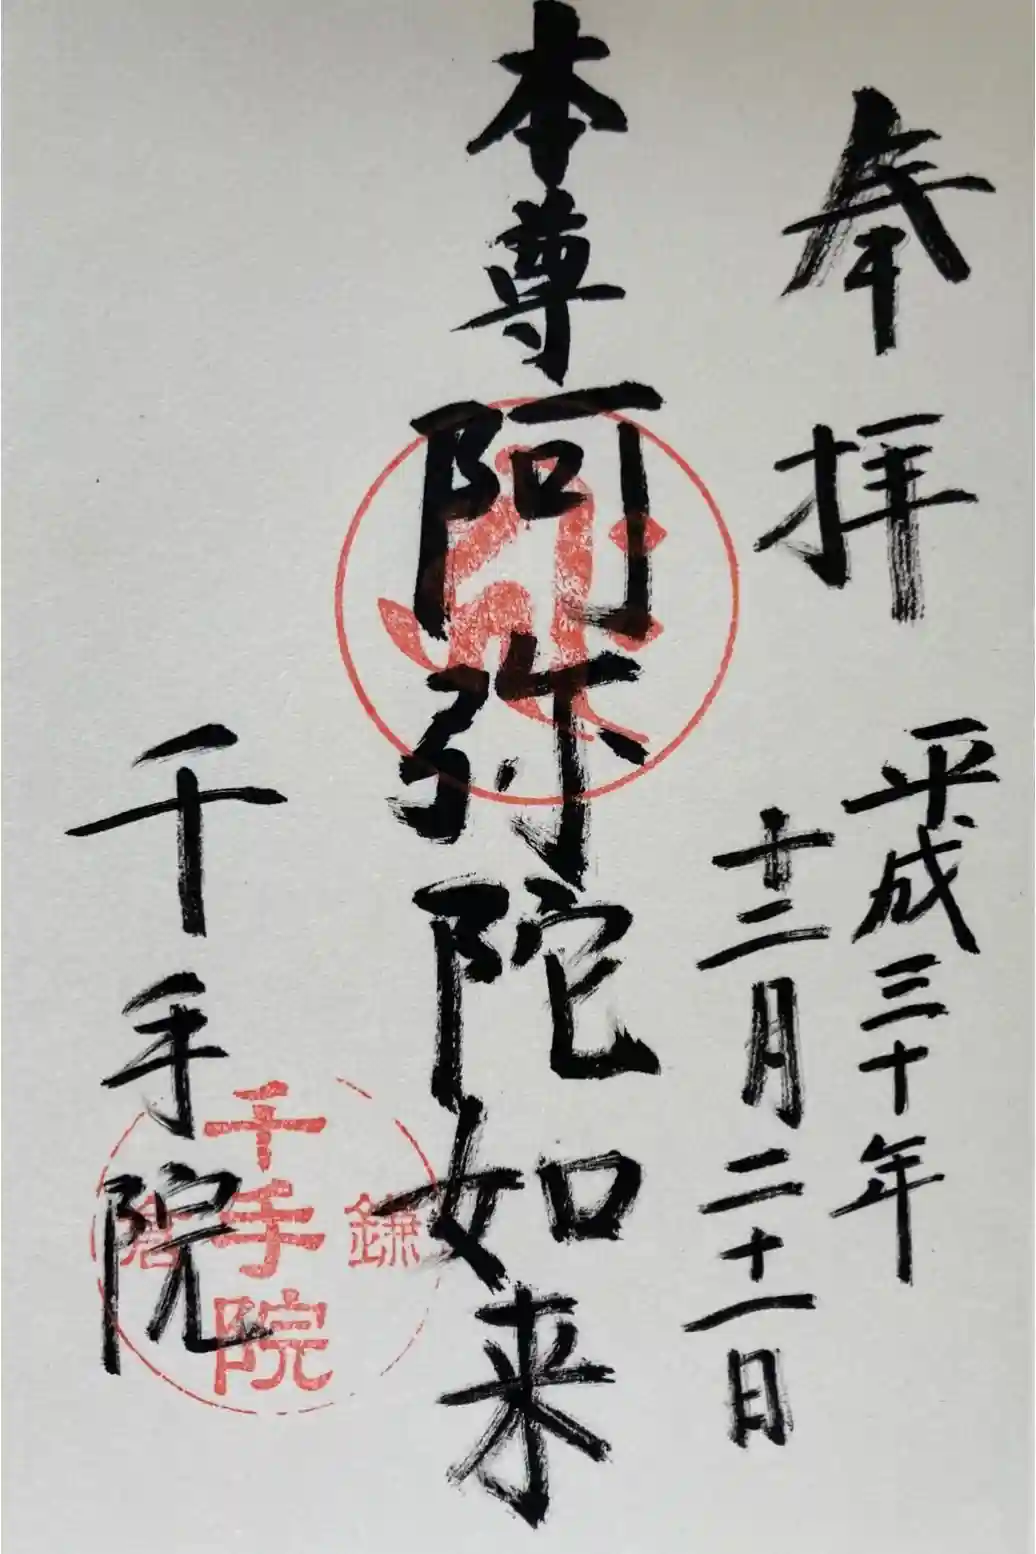 奉拝
平成三十年
十二月二十一日
本尊阿弥陀如来
千手院
鎌倉
千手院